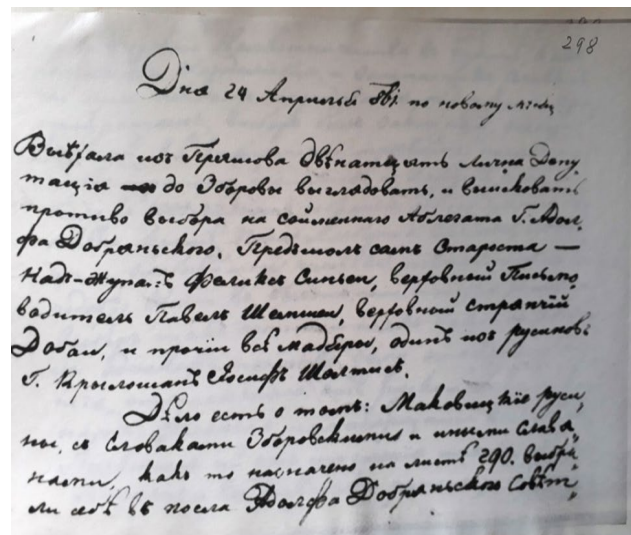 298
Дня 24 Априльѣ 861. по новому мѣсяц
Выѣхала изъ Пряшова двѣнатцять лична Депу,
тація до Зборовы выглядовать, и выисковать
противо выбора на соймменнаго Аблегата Г. Адол,
фа Добряньского. Предъшолъ самъ Староста —
Надъ-Жупанъ Феликсъ Синьеи, верховный Письмо,
водитель Павелъ Шемшеи, верховный стряпчій
Добаи, и прочіи всѣ мадѣры, одинъ изъ русиновъ
Г. Крылошанъ Іосифъ Шолтисъ.
Дѣло есть о томъ: Маковицкіе руси,
ны, съ Словаками Зборовскими и иными Славя,
нами, какъ то назначено на листѣ 290. выбра,
ли себѣ въ посла Адолфа Добряньского Совѣт,